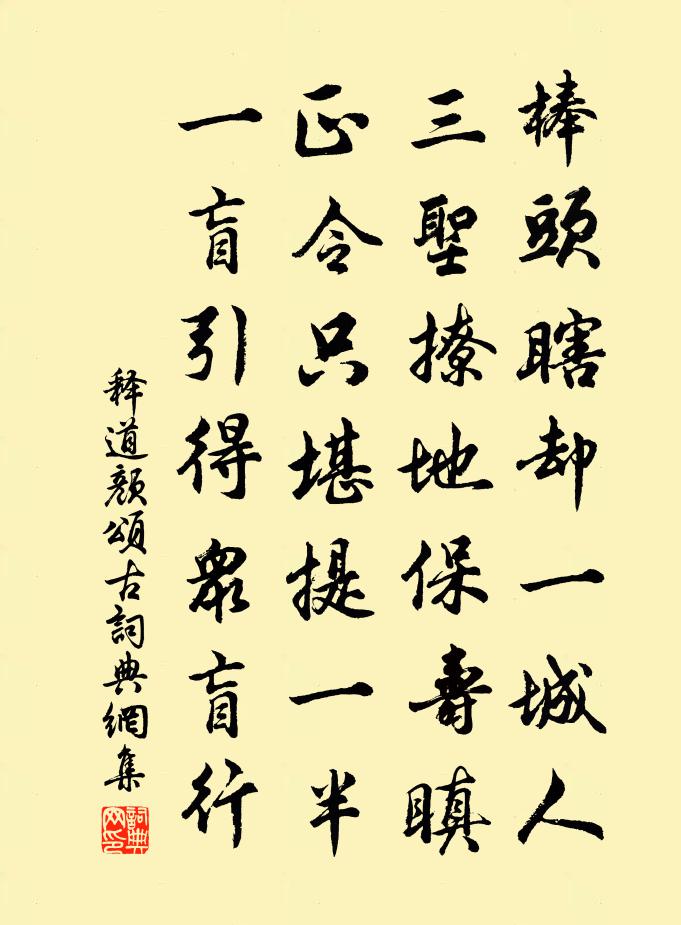 棒頭瞎却一城人
三聖撩地保壽瞋
正令只堪提一半
一盲引得衆盲行
释道颜頌古詞典網集
詞典
网印